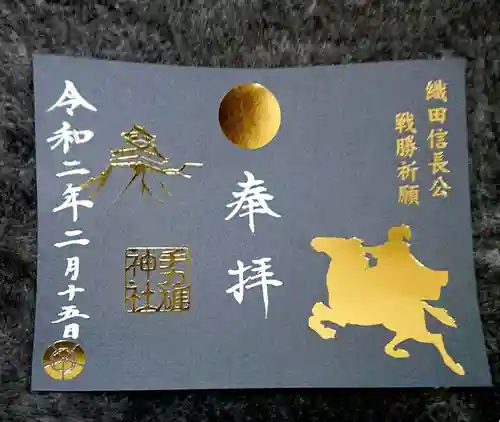 織田信長公
戦勝祈願
奉拝
手力雄
神社
令和二年二月十五日